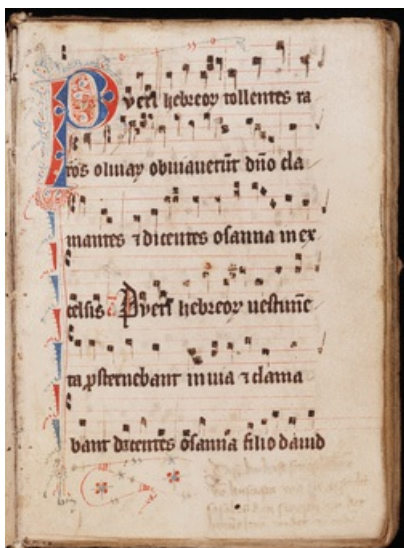 Pueri hebreoꝝ tollentes ra
mos oliuaꝝ obuiauerūt dn̄o cla
mantes ⁊ dicentes osanna in ex
celsis Pueri hebreoꝝ uestimē
ta ꝓsternebant in uia ⁊ clama
bant dicentes osanna filio dauid